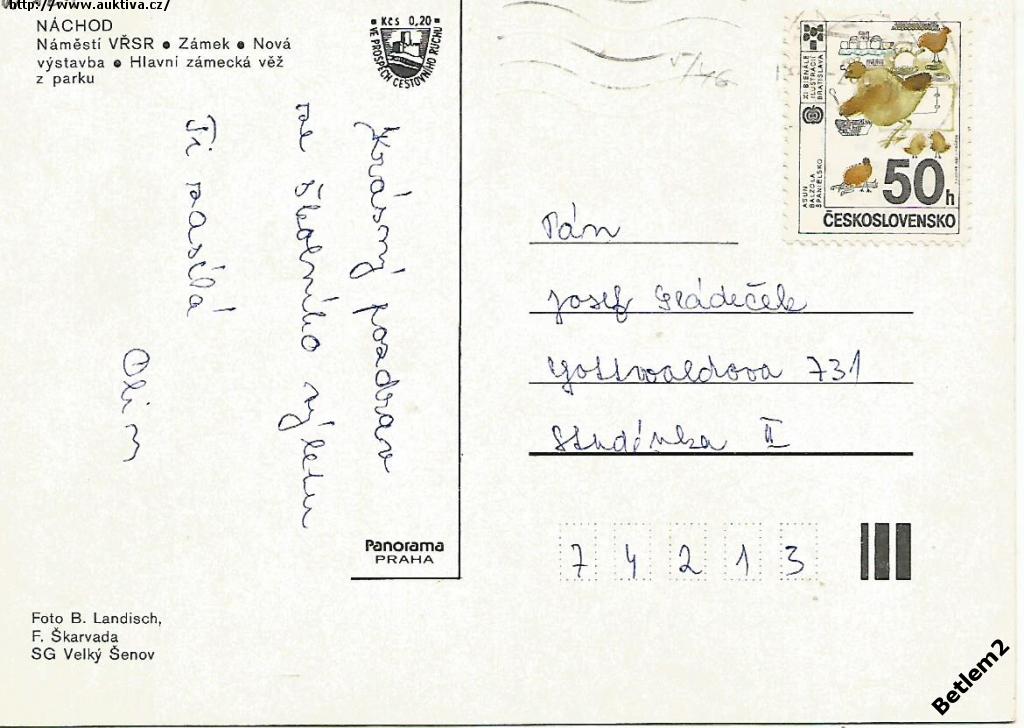 http://www.auktiva.cz/
NÁCHOD
Náměstí VŘSR • Zámek • Nová
výstavba • Hlavní zámecká věž
z parku
Kčs 0,20
VE PROSPĚCH CESTOVNÍHO RUCHU
Krásný pozdrav
ze školního výletu
Ti zasílá
Panorama
PRAHA
Foto B. Landisch,
F. Škarvada
SG Velký Šenov
XI BIENÁLE
ILUSTRÁCIÍ
BRATISLAVA
ASUN
BALZOLA
ŠPANIELSKO
50h
ČESKOSLOVENSKO
Pán
Josef
Gottwaldova 731
Studénka II
74213
Betlem2